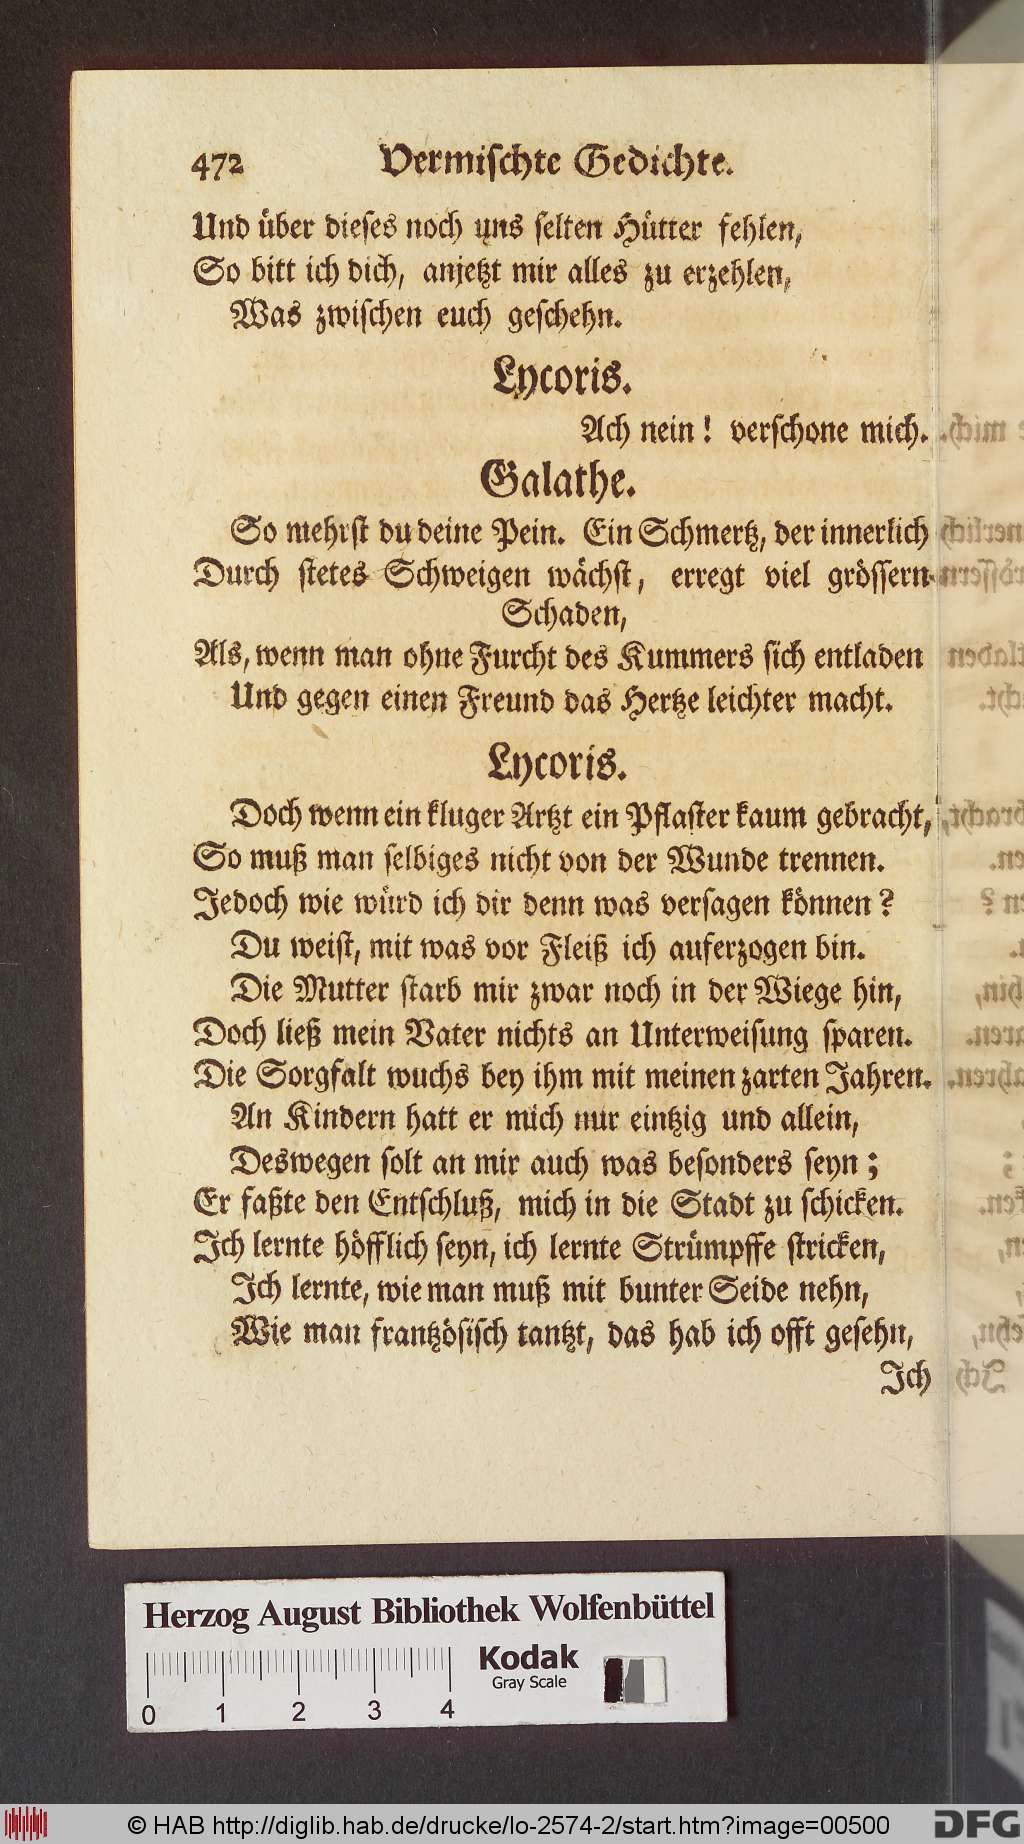 472 Vermischte Gedichte.
Und über dieses noch uns selten Hütter fehlen,
So bitt ich dich, anjetzt mir alles zu erzehlen,
Was zwischen euch geschehn.
Lycoris.
Ach nein! verschone mich.
Galathe.
So mehrst du deine Pein. Ein Schmertz, der innerlich
Durch stetes Schweigen wächst, erregt viel grössern
Schaden,
Als, wenn man ohne Furcht des Kummers sich entladen
Und gegen einen Freund das Hertze leichter macht.
Lycoris.
Doch wenn ein kluger Artzt ein Pflaster kaum gebracht,
So muß man selbiges nicht von der Wunde trennen.
Jedoch wie würd ich dir denn was versagen können?
Du weist, mit was vor Fleiß ich auferzogen bin.
Die Mutter starb mir zwar noch in der Wiege hin,
Doch ließ mein Vater nichts an Unterweisung sparen.
Die Sorgfalt wuchs bey ihm mit meinen zarten Jahren.
An Kindern hatt er mich nur eintzig und allein,
Deswegen solt an mir auch was besonders seyn;
Er faßte den Entschluß, mich in die Stadt zu schicken.
Ich lernte höfflich seyn, ich lernte Strümpffe stricken,
Ich lernte, wie man muß mit bunter Seide nehn,
Wie man frantzösisch tantzt, das hab ich offt gesehn,
Ich
Herzog August Bibliothek Wolfenbüttel
Kodak
Gray Scale
0 1 2 3 4
© HAB http://diglib.hab.de/drucke/lo-2574-2/start.htm?image=00500
DFG